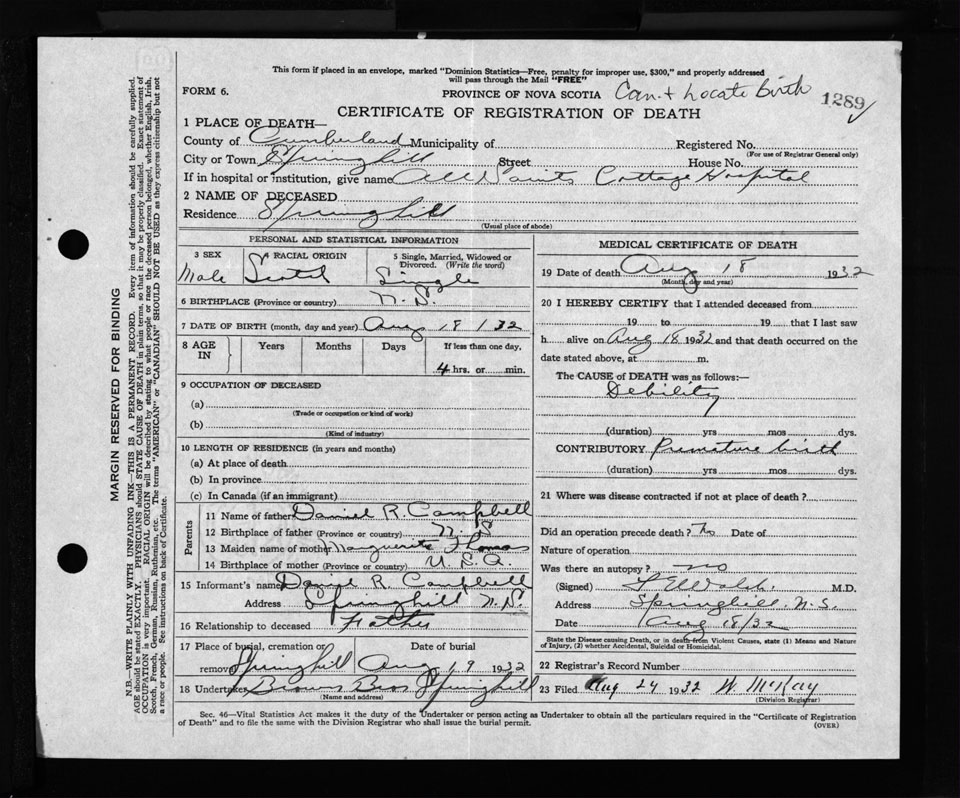 This form if placed in an envelope, marked "Dominion Statistics—Free, penalty for improper use, $300," and properly addressed
will pass through the Mail "FREE"
FORM 6. PROVINCE OF NOVA SCOTIA Can't Locate Birth 1289
CERTIFICATE OF REGISTRATION OF DEATH
1 PLACE OF DEATH—
County of Cumberland Municipality of Registered No.
(For use of Registrar General only)
City or Town Springhill Street House No.
If in hospital or institution, give name All Saints Cottage Hospital
2 NAME OF DECEASED
Residence Springhill
(Usual place of abode)
PERSONAL AND STATISTICAL INFORMATION
3 SEX 4 RACIAL ORIGIN 5 Single, Married, Widowed or
Divorced. (Write the word)
Male Scotch Single
6 BIRTHPLACE (Province or country) N.S.
7 DATE OF BIRTH (month, day and year) Aug 18 / 32
8 AGE IN Years Months Days If less than one day,
4 hrs. or min.
9 OCCUPATION OF DECEASED
(a)
(Trade or occupation or kind of work)
(b)
(Kind of industry)
10 LENGTH OF RESIDENCE (in years and months)
(a) At place of death
(b) In province
(c) In Canada (if an immigrant)
Parents
11 Name of father Daniel R. Campbell
12 Birthplace of father (Province or country) N.S
13 Maiden name of mother Marguerite Thomas
14 Birthplace of mother (Province or Country) U.S.A.
15 Informant's name Daniel R. Campbell
Address Springhill N.S.
16 Relationship to deceased Father
17 Place of burial, cremation or Date of burial
removal Springhill Aug 19 1932
18 Undertaker Brown Bros Springhill
(Name and address)
MEDICAL CERTIFICATE OF DEATH
19 Date of death Aug 18 1932
(Month, day and year)
20 I HEREBY CERTIFY that I attended deceased from
19 to 19 that I last saw
h alive on Aug 18 1932 and that death occurred on the
date stated above, at m.
The CAUSE of DEATH was as follows:—
Debility
(duration) yrs mos dys.
CONTRIBUTORY Premature birth
(duration) yrs mos dys.
21 Where was disease contracted if not at place of death?
Did an operation precede death? No Date of
Nature of operation
Was there an autopsy? no
(Signed) Walsh M.D.
Address Springhill N.S.
Date Aug 18/32
State the Disease causing Death, or in death from Violent Causes, state (1) Means and Nature
of Injury, (2) whether Accidental, Suicidal or Homicidal.
22 Registrar's Record Number
23 Filed Aug 24 1932 W. McKay
(Division Registrar)
Sec. 46—Vital Statistics Act makes it the duty of the Undertaker or person acting as Undertaker to obtain all the particulars required in the "Certificate of Registration
of Death" and to file the same with the Division Registrar who shall issue the burial permit.
(OVER)
MARGIN RESERVED FOR BINDING
N.B.—WRITE PLAINLY WITH UNFADING INK—THIS IS A PERMANENT RECORD. Every item of information should be carefully supplied.
AGE should be stated EXACTLY. PHYSICIANS should STATE CAUSE OF DEATH in plain terms, so that it may be properly classified. Exact statement of
OCCUPATION is very important. RACIAL ORIGIN will be described by stating to what people or race the deceased person belonged, whether English, Irish,
Scotch, French, German, Russian, Ruthenian, etc. The terms "AMERICAN" or "CANADIAN" SHOULD NOT BE USED as they express citizenship but not
a race or people. See instructions on back of Certificate.